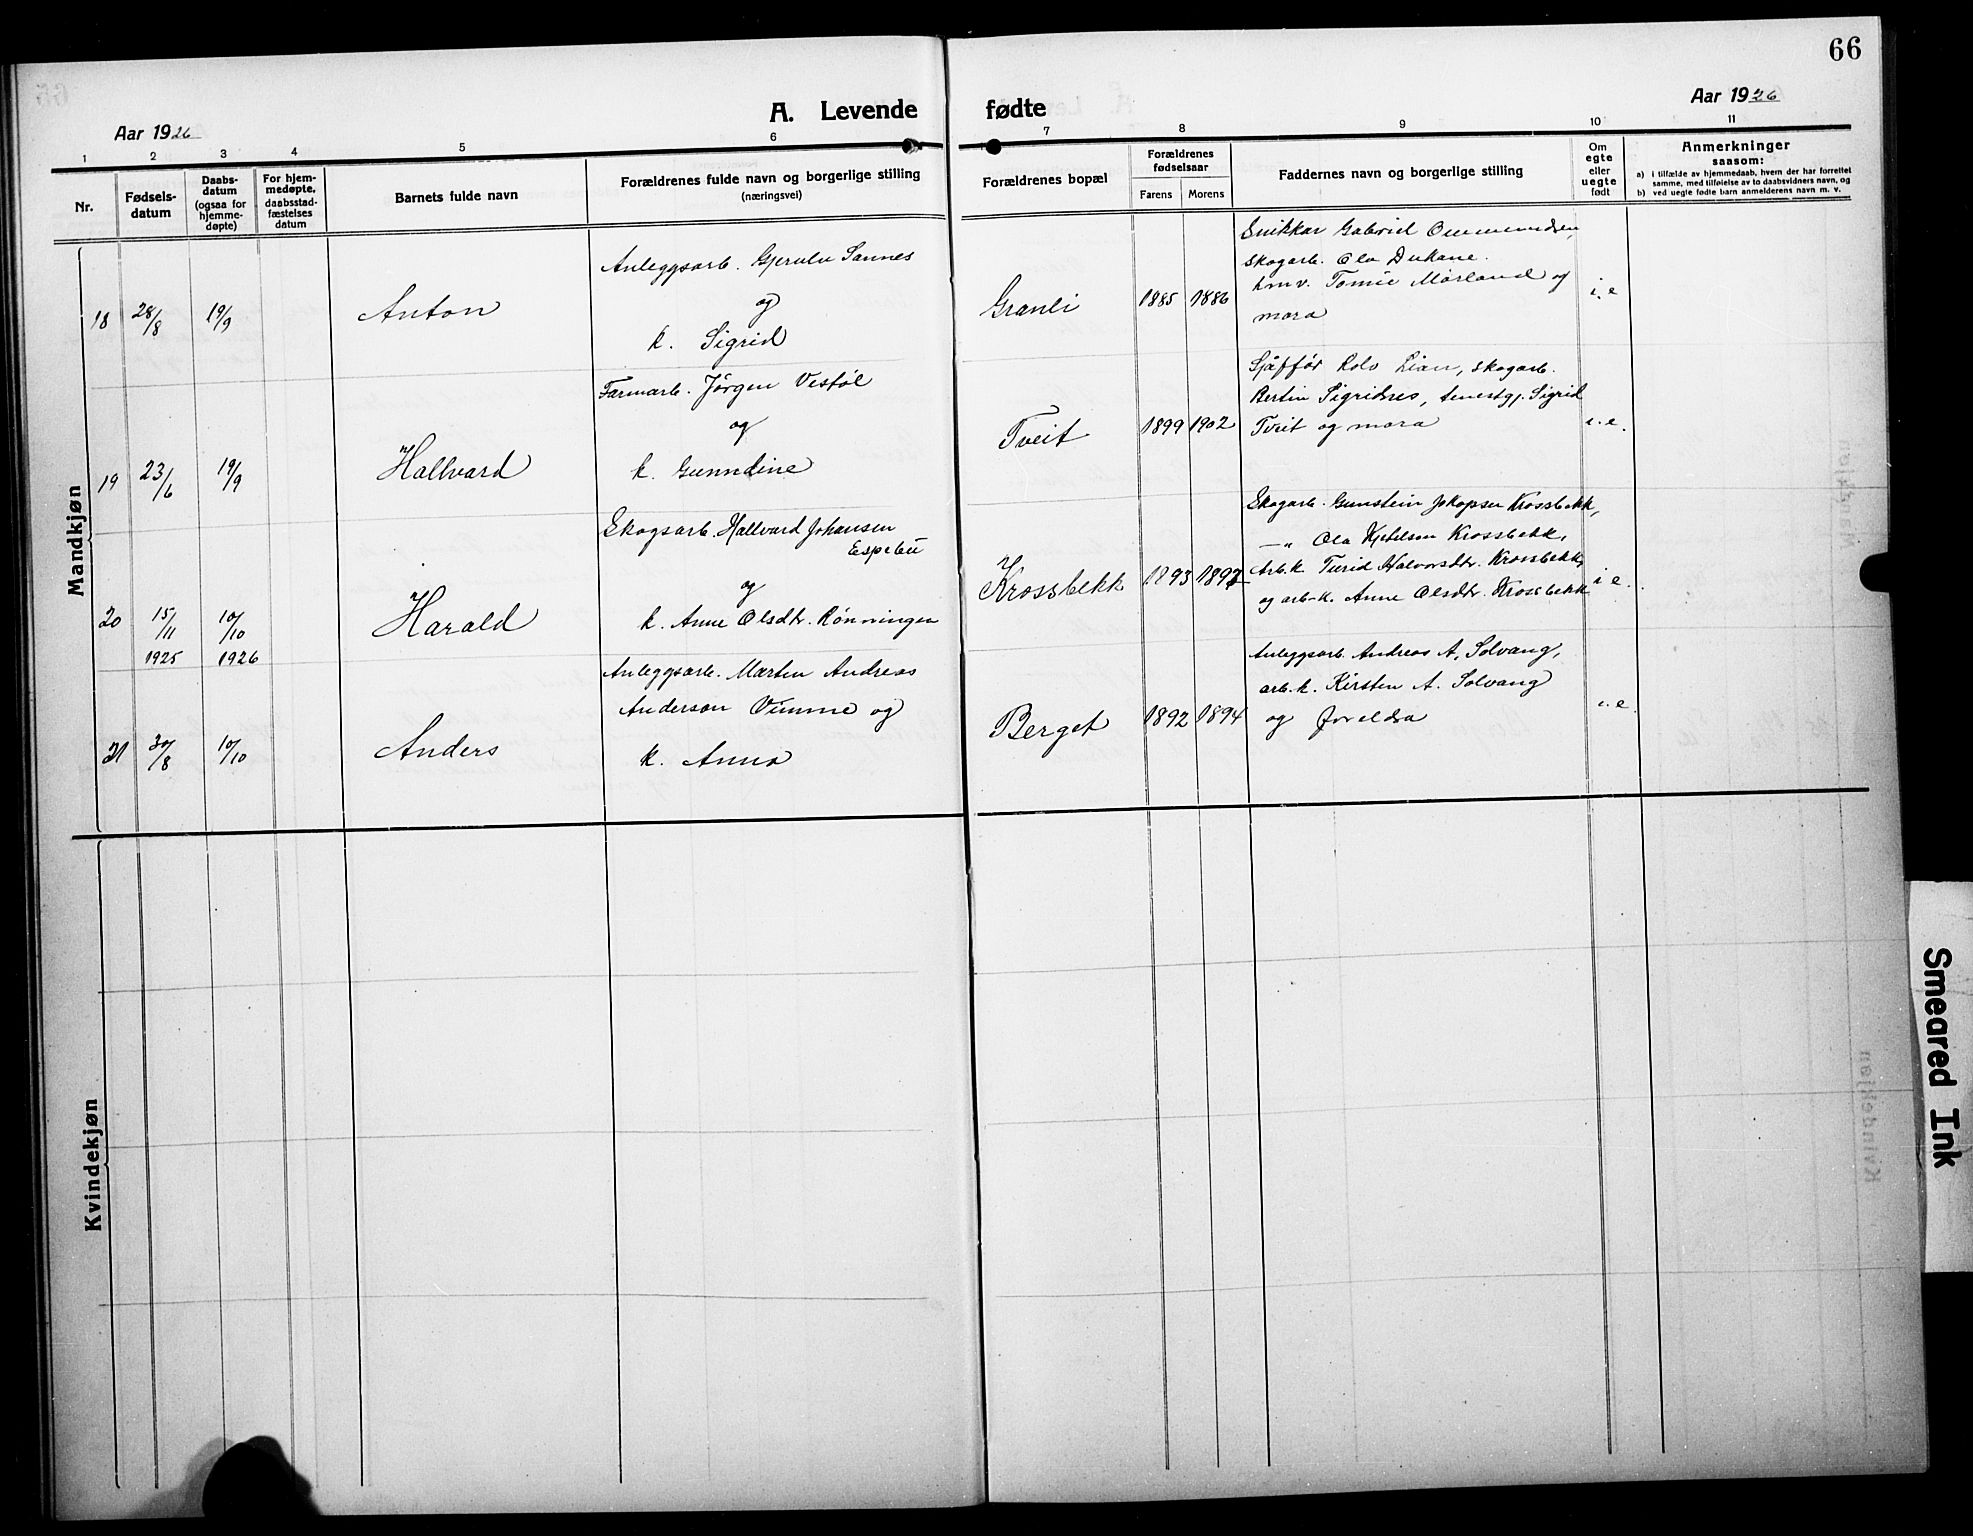 66
Aar 1926
A. Levende fødte
Aar 1926
1 2 3 4 5 6 7 8 9 10 11
Nr.
Fødsels-
datum
Daabs-
datum
(ogsaa for
hjemme-
døpte)
For hjem-
medøpte,
daabsstad-
fæstelses
datum
Barnets fulde navn
Forældrenes fulde navn og borgerlige stilling
(næringsvei)
Forældrenes bopæl
Forældrenes
fødselsaar
Farens Morens
Faddernes navn og borgerlige stilling
Om
egte
eller
uegte
født
Anmerkninger
saasom:
a) i tilfælde av hjemmedaab, hvem der har forrettet
samme, med tilføielse av to daabsvidners navn, og
b) ved uegte fødte barn anmelderens navn m. v.
Mandkjøn
18 28/8 19/9 Anton
Anleggsarb. Gjerulv Sannes
og
k. Sigrid
Granli 1885 1886
Snikkar Gabriel Ommundsen,
skogarb. Ola Dukane.
hmv. Tomine Mørland og
mora
i. e
19 23/6 19/9 Hallvard
Farmarb. Jörgen Vestöl
og
k. Gunndine
Tveit 1899 1902
Sjåffør Rolv Lian, skogarb.
Bertin Sigridnes, tenestgj. Sigrid
Tveit og mora
i. e.
20 15/11 1925 10/10 1926 Harald
Skogsarb. Hallvard Johansen
Espebu
og
k. Anne Olsdtr. Rönningen
Krossbekk 1893 1897
Skogarb. Gunstein Jakopsen Krossbekk,
—„ Ola Kjetilson Krossbekk,
Arb.k. Turid Halvorsdtr. Krossbekk,
og arb-k. Anne Olsdtr. Krossbekk
i e.
21 30/8 10/10 Anders
Anleggsarb. Marten Andreas
Anderson Vimme og
k. Anna
Berget 1892 1894
Anleggsarb. Andreas A. Solvang,
arb.k. Kirsten A. Solvang
og foreldra
i. e.
Kvindekjøn
Smeared Ink